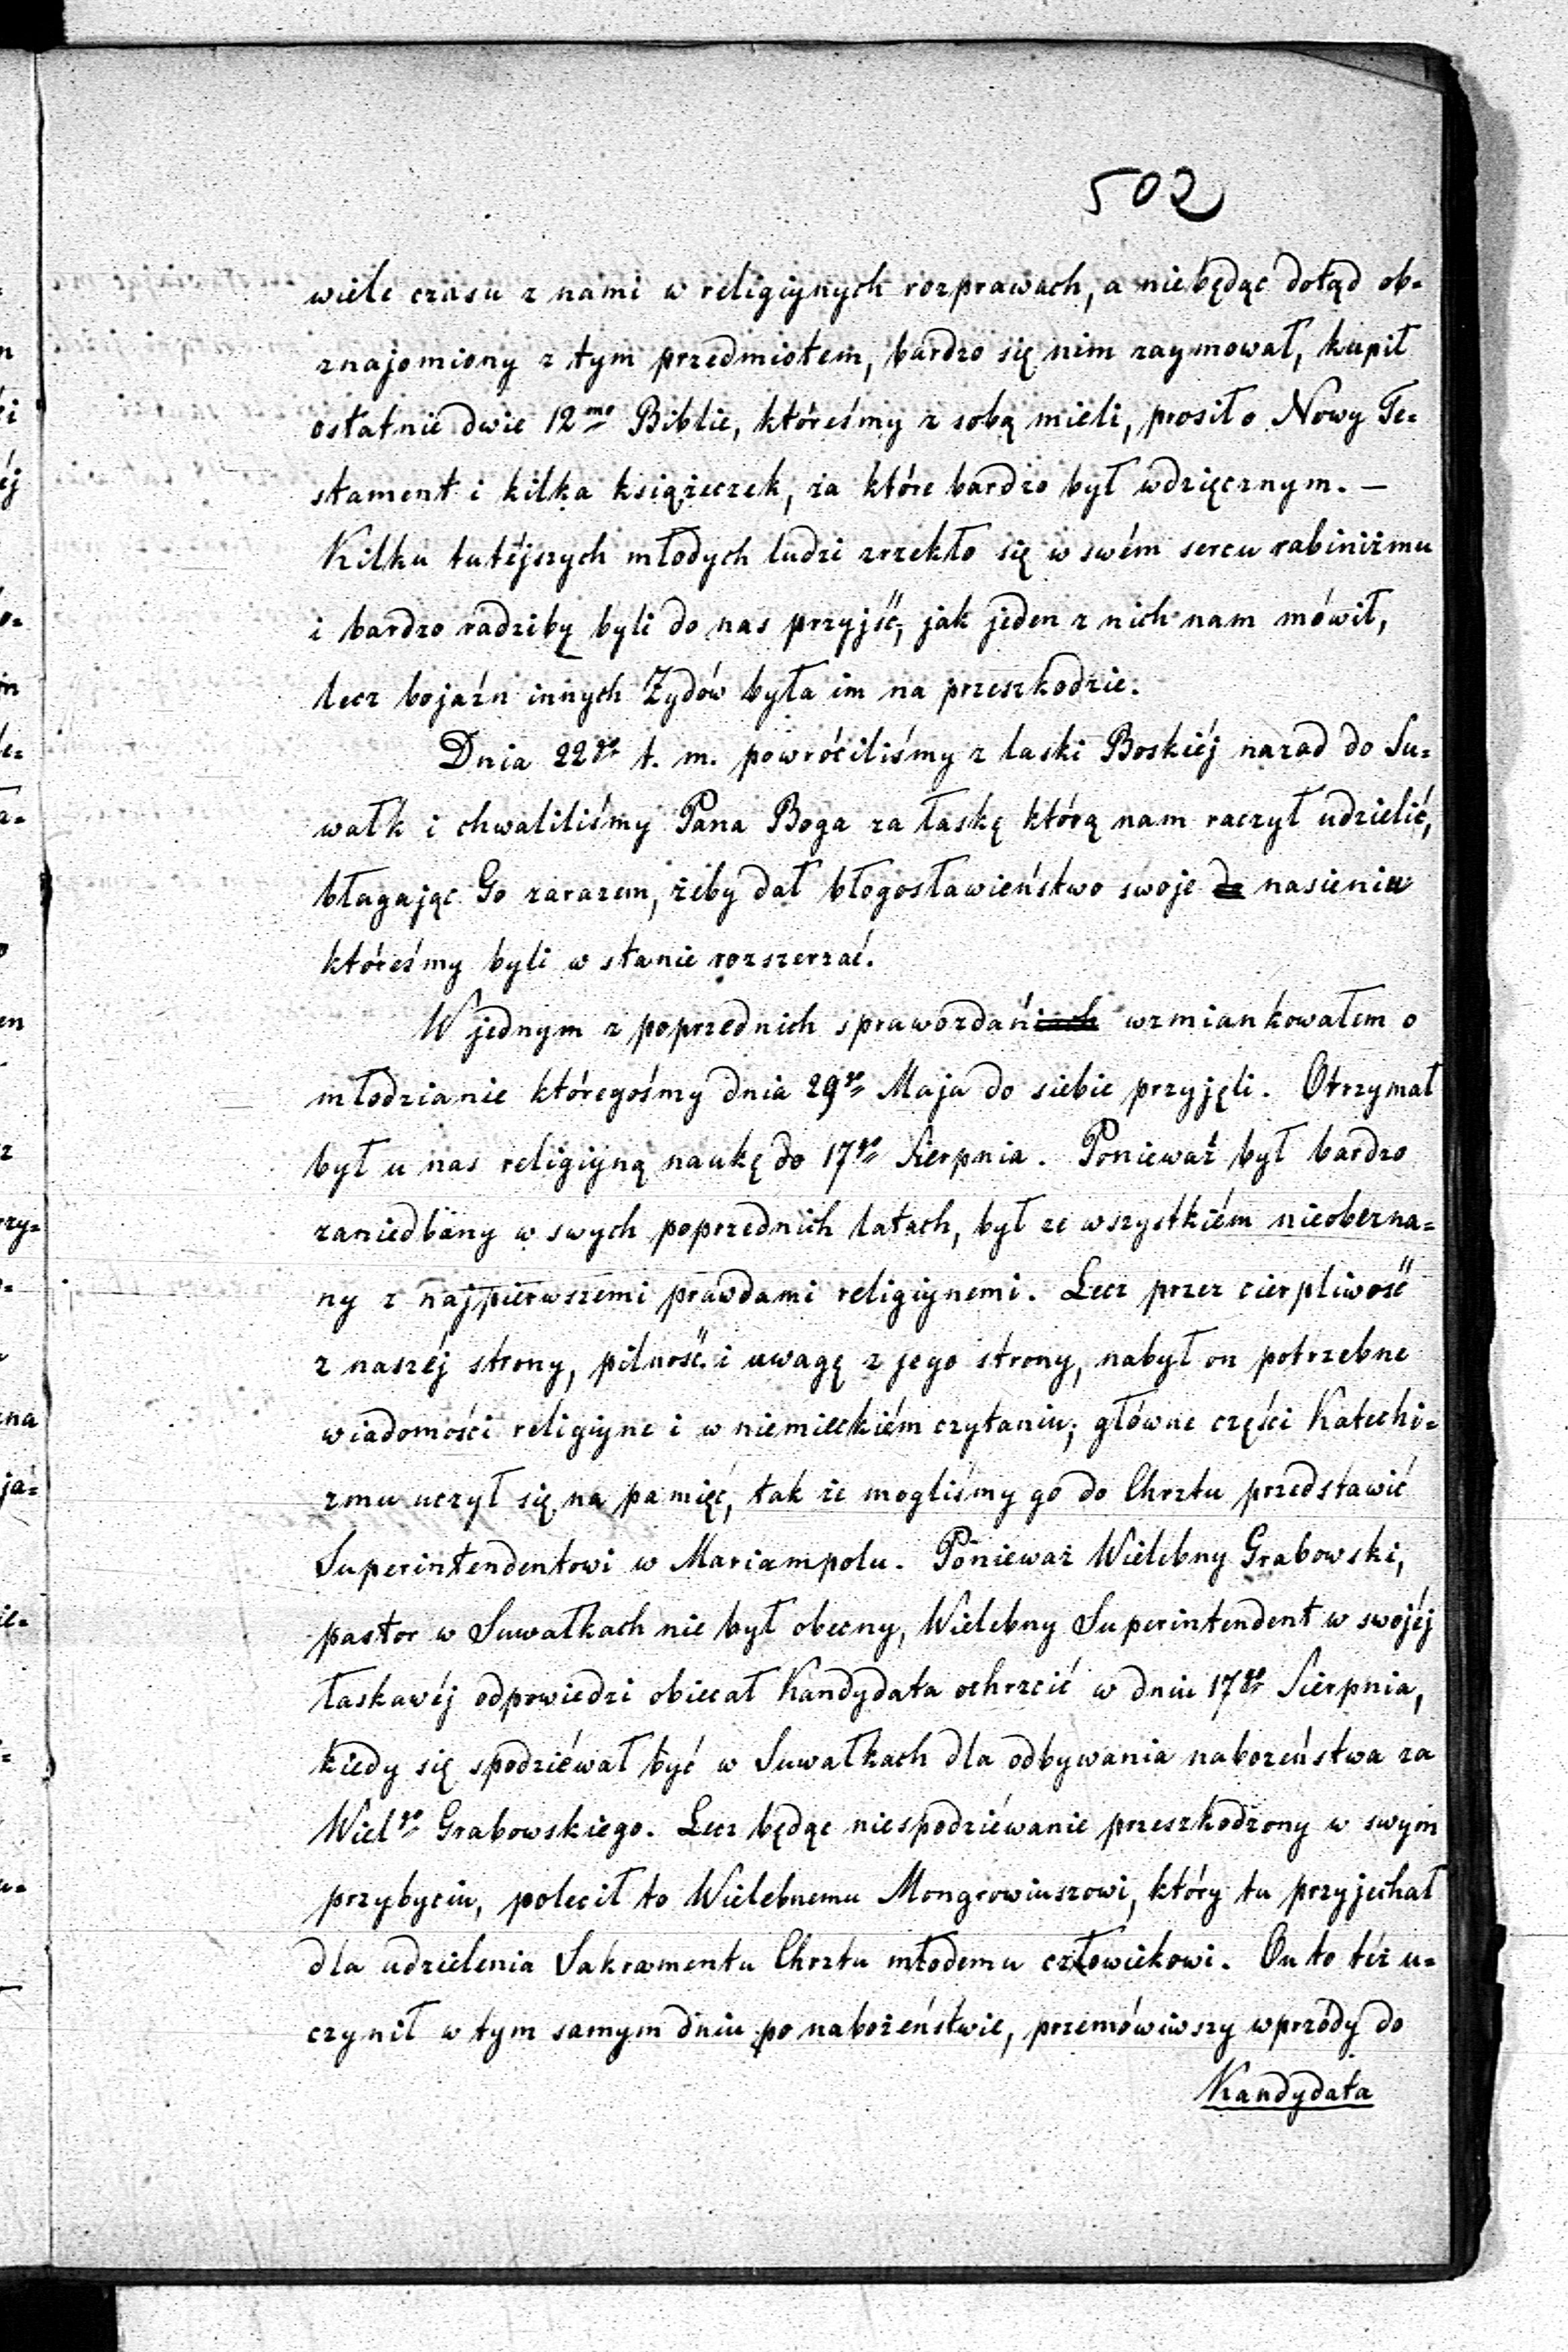 502
wiele czasu z nami w religiynych rozprawach, a niebędąc dotąd ob=
znajomiony z tym przedmiotem, bardzo się nim zaymował, kupił
ostatnie dwie 12mo Biblie, któreśmy z sobą mieli, prosił o Nowy Te=
stament i kilka książeczek, za które bardzo był wdzięcznym. —
Kilku tutéjszych młodych ludzi zrzekło się w swém sercu rabinizmu
i bardzo radziby byli do nas przyjść, jak jeden z nich nam mówił,
lecz bojaźń innych Żydów była im na przeszkodzie.
Dnia 22go t. m. powróciliśmy z łaski Boskiéj nazad do Su=
wałk i chwaliliśmy Pana Boga za łaskę którą nam raczył udzielić,
błagając Go zarazem, żeby dał błogosławieństwo swoje do nasieniu
któreśmy byli w stanie rozszerzać.
W jednym z poprzednich sprawozdaniach wzmiankowałem o
młodzianie któregośmy dnia 29go Maja do siebie przyjęli. Otrzymał
był u nas religiyną naukę do 17go Sierpnia. Ponieważ był bardzo
zaniedbany w swych poprzednich latach, był ze wszystkiém nieobezna=
ny z najpierwszemi prawdami religiynemi. Lecz przez cierpliwość
z naszéj strony, pilność i uwagę z jego strony, nabył on potrzebne
wiadomości religiyne i w niemieckiém czytaniu; główne części Katechi=
zmu uczył się na pamięć, tak że mogliśmy go do Chrztu przedstawić
Superintendentowi w Mariampolu. Ponieważ Wielebny Grabowski,
pastor w Suwałkach nie był obecny, Wielebny Superintendent w swojéj
łaskawéj odpowiedzi obiecał Kandydata ochrzcić w dniu 17go Sierpnia,
kiedy się spodziéwał być w Suwałkach dla odbywania nabożeństwa za
Wielgo Grabowskiego. Lecz będąc niespodziéwanie przeszkodzony w swym
przybyciu, polecił to Wielebnemu Mongrowiuszowi, który tu przyjechał
dla udzielenia Sakramentu Chrztu młodemu człowiekowi. On to téż u=
czynił w tym samym dniu po nabożeństwie, przemówiwszy wprzódy do
Kandydata